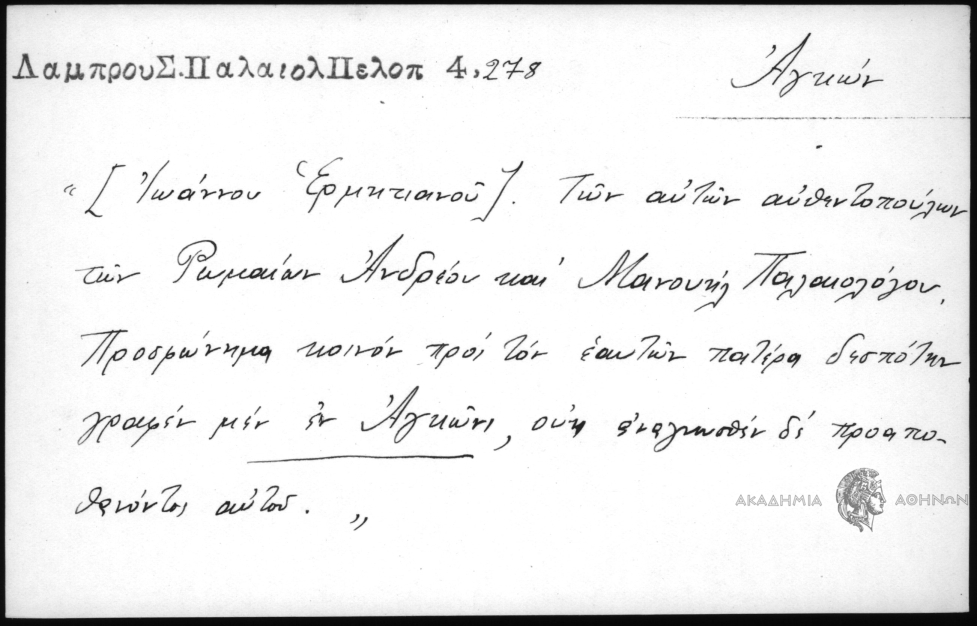 ΛαμπρουΣ.ΠαλαιολΠελοπ 4,278
Ἀγκών
“[Ἰωάννου Ἑρμητιανοῦ]. Τῶν αὐτῶν αὐθεντοπούλων
τῶν Ρωμαίων Ἀνδρέου καὶ Μανουὴλ Παλαιολόγου.
Προσφώνημα κοινόν πρός τόν ἑαυτῶν πατέρα δεσπότην
γραφέν μέν ἐν Ἀγκῶνι, οὐκ ἀναγνωσθέν δέ προαπο-
θανόντος αὐτοῦ. „
ΑΚΑΔΗΜΙΑ ΑΘΗΝΩΝ